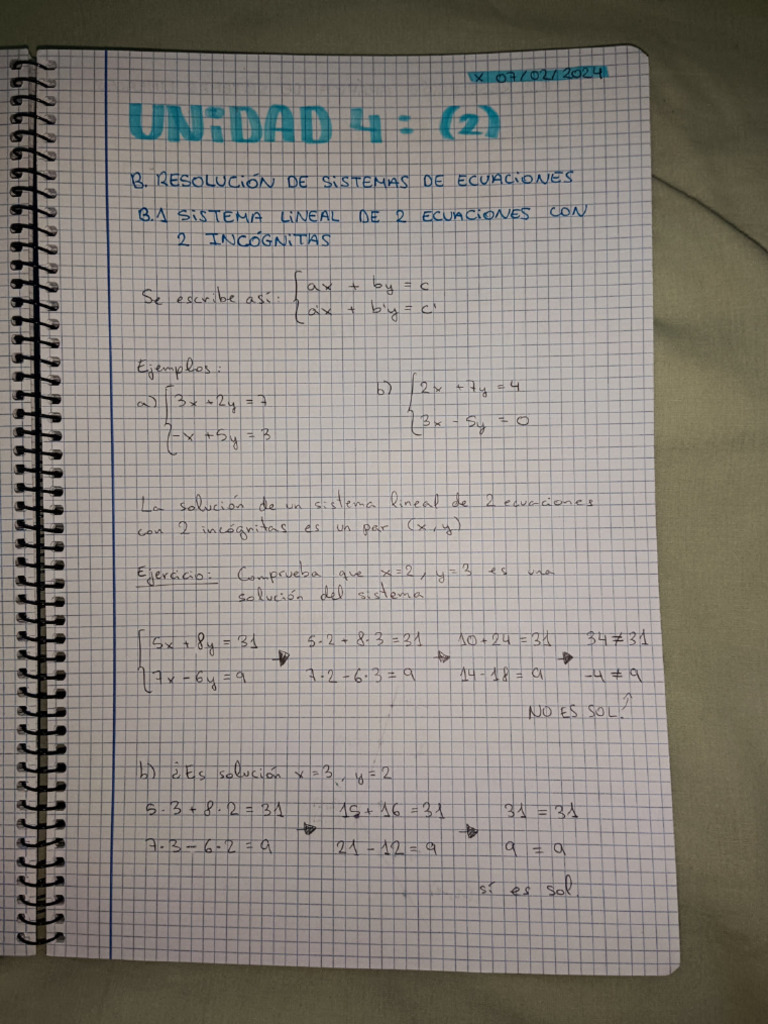 X 07/02/2024
UNIDAD 4: (2)
B. RESOLUCIÓN DE SISTEMAS DE ECUACIONES
B.1 SISTEMA LINEAL DE 2 ECUACIONES CON
2 INCÓGNITAS
Se escribe así: { ax + by = c
a'x + b'y = c'
Ejemplos:
a) { 3x + 2y = 7
-x + 5y = 3
b) { 2x + 7y = 4
3x - 5y = 0
La solución de un sistema lineal de 2 ecuaciones
con 2 incógnitas es un par (x, y)
Ejercicio: Comprueba que x=2, y=3 es una
solución del sistema
{ 5x + 8y = 31 → 5·2 + 8·3 = 31 → 10+24 = 31 → 34 ≠ 31
7x - 6y = 9 7·2 - 6·3 = 9 14-18 = 9 -4 ≠ 9
NO ES SOL.
b) ¿Es solución x=3, y=2
5·3 + 8·2 = 31 → 15 + 16 = 31 → 31 = 31
7·3 - 6·2 = 9 21 - 12 = 9 9 = 9
sí es sol.